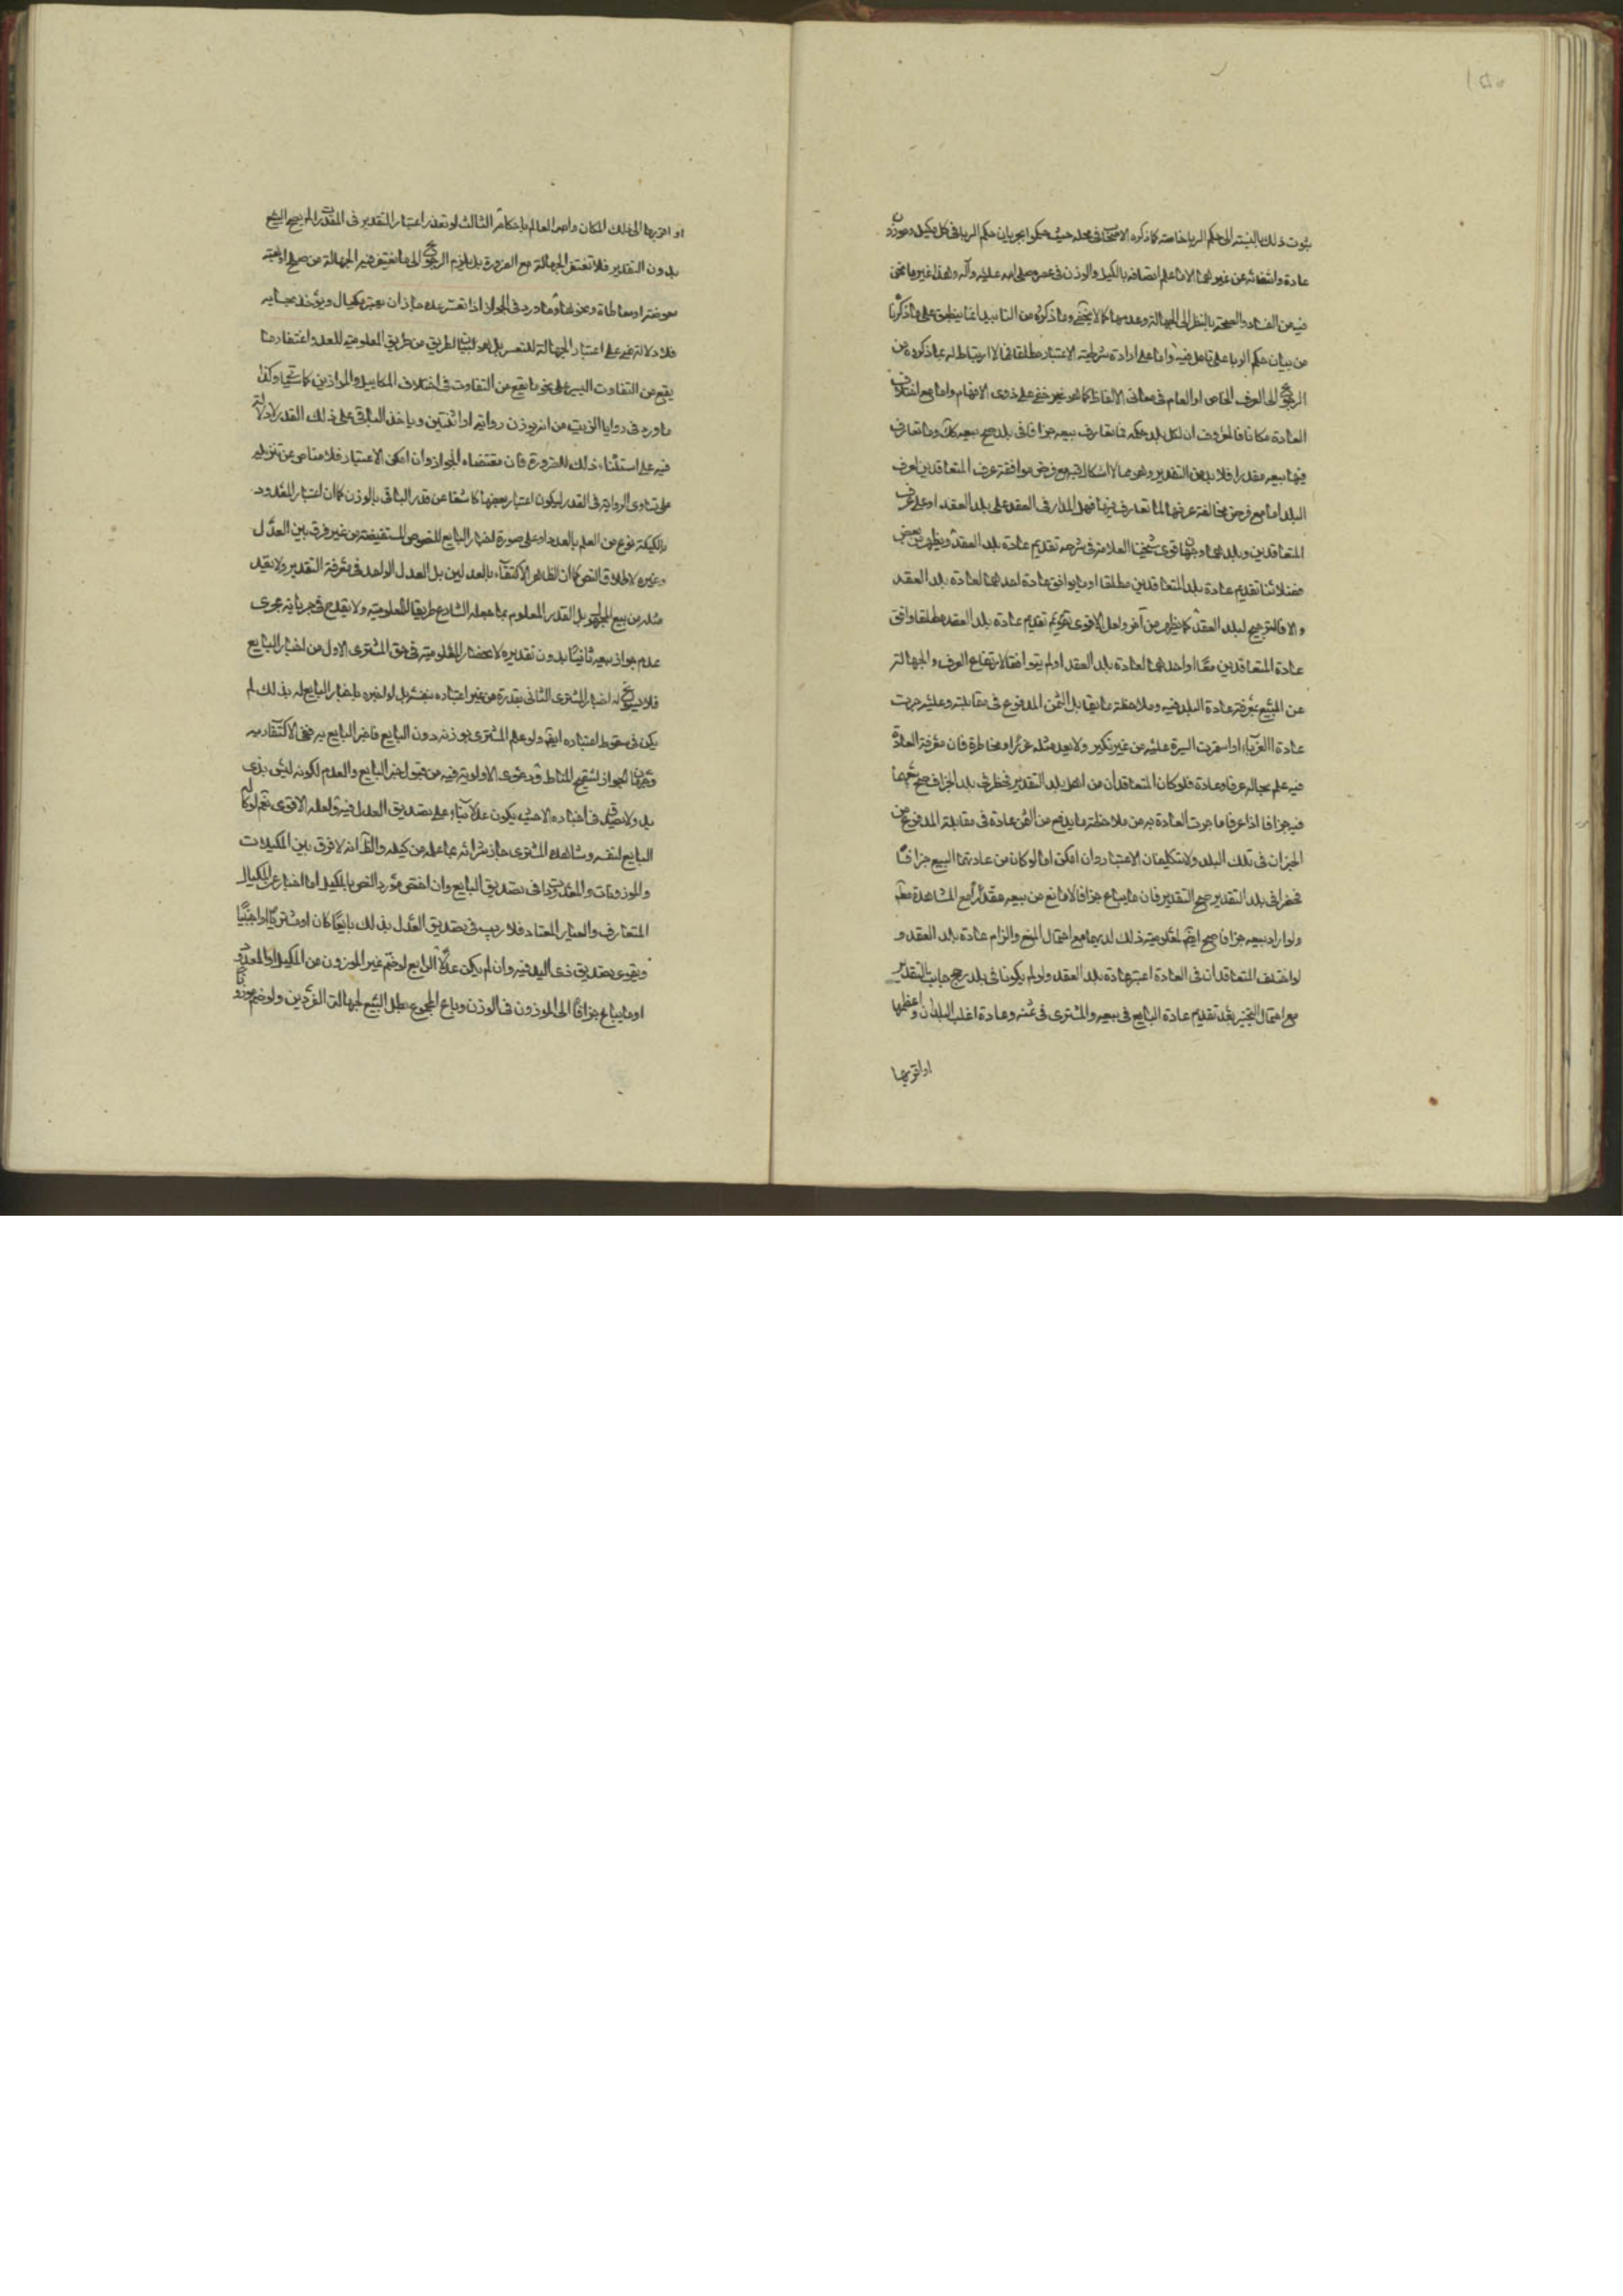 ثبوت ذلك بالنسبة الى حكم الربا خاصة كما ذكره الاصحاب فى محله حيث حكموا بجريان حكم الربا فى كل مكيل وموزون
عادة وانتفائه عن غيرهما الا ما علم اتصافه بالكيل والوزن فى عصره صلى الله عليه وآله وهذا غير ما نحن
فيه من الفساد والصحة بالنظر الى الجهالة وعدمها كما لا يخفى وما ذكروه من التأييد انما ينطبق على ما ذكرنا
من بيان حكم الربا على تأمل فيه واما على ارادة شرطية الاعتبار مطلقا فلا ارتباط له بما ذكروه من
الرجوع الى العرف الخاص او العام فى معانى الالفاظ كما هو غير خفى على ذوى الافهام واما مع اختلاف
العادة مكانا فالمعروف ان لكل بلد حكمه فما تعارف بيعه جزافا فى بلد صح بيعه كك وما تعارف
فيها بيعه مقدرا فلا بد من التقدير وهو مما لا اشكال فيه مع فرض موافقة عرف المتعاقدين لعرف
البلد اما مع فرض مخالفة عرفهما لما تعارف فيها فهل المدار فى العقد على بلد العقد او على عرف
المتعاقدين وبلدهما وجهان قوى شيخنا العلامة فى شرحه تقديم عادة بلد العقد ويظهر من بعض
فضلائنا تقديم عادة بلد المتعاقدين مطلقا او ما يوافق عادة احدهما لعادة بلد العقد
والا فالترجيح لبلد العقد كما يظهر من آخر ولعل الاقوى تقديم عادة بلد العقد مطلقا وافق
عادة المتعاقدين معا او احدهما لعادة بلد العقد او لم يتوافقا لارتفاع الغرر والجهالة
عن المبيع بمعرفة عادة البلد فيه وملاحظة ما يقابل الثمن المدفوع فى مقابلته وعليه جرت
عادة الغرباء واستمرت السيرة عليه من غير نكير ولا يعد مثله غررا ومخاطرة فان معرفة العادة
فيه علم بحاله عرفا وعادة فلو كان المتعاقدان من اهل بلد التقدير فحضرا فى بلد الجزاف صح بيعهما
فيه جزافا اذا عرفا ما جرت العادة به من ملاحظة ما يدفع من الثمن عادة فى مقابلة المدفوع من
الجزاف فى تلك البلد ولا يتكلفان الاعتبار وان امكن اما لو كان من عادتهما البيع جزافا
فحضرا فى بلد التقدير صح التقدير فان ما يباع جزافا لا مانع من بيعه مقدرا مع المشاهدة معه
ولو اراد بيعه جزافا صح ايضا لمعلومية ذلك لديهما مع احتمال المنع والزام عادة بلد العقد و
لو اختلف المتعاقدان فى العادة اعتبر عادة بلد العقد ولو لم يكونا فى بلد رجح جانب التقدير
مع احتمال التخيير بعد تقديم عادة البايع فى بيعه والمشترى فى ثمنه وعادة اغلب البلدان واعظمها
او اقربها
او اقربها الى ذلك المكان واصه العالم باحكامه الثالث لو تعذر اعتبار التقدير فى المقدرات لم يصح البيع
بدون التقدير فلا تغتفر الجهالة مع الضرورة بل يلزم الرجوع الى ما يغتفر فيه الجهالة من صلح او هبة
معوضة او معاطاة ونحوها وما ورد فى الجواز اذا تعسر عده جاز ان يعتبر بمكيال ويؤخذ بحسابه
فلا دلالة فيه على اعتبار الجهالة للتعسر بل هو لبيان الطريق من طريق المعلومية للعدد واغتفار ما
يقع من التفاوت اليسير على نحو ما يقع من التفاوت فى اختلاف المكاييل والموازين كما ستجئ وكذا
ما ورد فى روايا الزيت من انه يوزن رواية او اثنتين وياخذ الباقى على ذلك القدر لا دلالة
فيه على استثناء ذلك للضرورة فان مقتضاه الجواز وان امكن الاعتبار فلا مناص عن تنزيله
على تساوى الرواية فى القدر ليكون اعتبار بعضها كاشفا عن قدر الباقى بالوزن كما ان اعتبار المعدود
بالكيلة نوع من العلم بالعدد او على صورة اخبار البايع للنصوص المستفيضة من غير فرق بين العدل
وغيره لاطلاق النص كما ان الظاهر الاكتفاء بالعدلين بل العدل الواحد فى معرفة التقدير ولا يعد
مثله من بيع المجهول بل القدر المعلوم بما جعله الشارع طريقا للمعلومية ولا يقدح فى جريانه مجرى
عدم جواز بيعه ثانيا بدون تقديره لانحصار المعلومية فى حق المشترى الاول من اخبار البايع
فلا يسوغ له اخبار المشترى الثانى بقدره من غير اعتباره بنفسه بل لو اخبره باخبار البايع له بذلك لم
يكن فى سقوط اعتباره ايضا ولو علم المشترى بوزنه دون البايع فاخبر البايع به ففى الاكتفاء به
وجهان الجواز لتنقيح المناط ودعوى الاولوية فيه من قبول خبر البايع والعدم لكونه ليس بذى
يد ولا يصدق فى اخباره الا حيث يكون عدلا بناء على تصديق العدل فيه ولعله الاقوى نعم لو كاله
البايع لنفسه وشاهده المشترى جاز شرائه بما علمه من كيله والظاهر انه لا فرق بين المكيلات
والموزونات والمعدودات فى تصديق البايع وان اختص مورد النص بالمكيل اما اخباره عن المكيال
المتعارف والعيار المعتاد فلا ريب فى تصديق العدل بذلك بايعا كان او مشتريا او اجنبيا
ويقوى تصديق ذى اليد فيه وان لم يكن عدلا الرابع لو ضم غير الموزون من المكيل او المعدود
او ما يباع جزافا الى الموزون فى الوزن وباع المجموع بطل البيع لجهالة الفردين ولو ضم موزونا